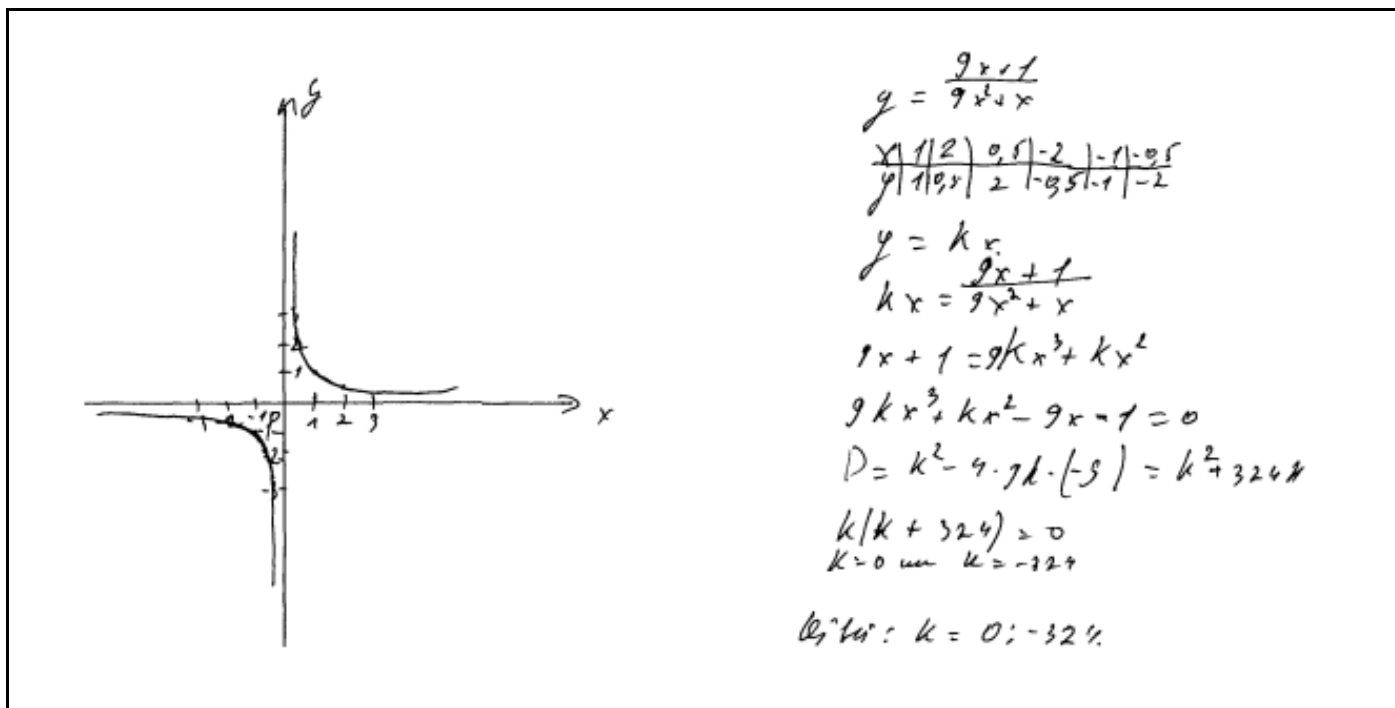 y
x
1 2 3
1
2
-1
-2
-3
y = \frac{9x+1}{9x²+x}
x | 1 | 2 | 0,5 | -2 | -1 | -0,5
y | 1 | 0,5 | 2 | -0,5 | -1 | -2
y = kx
kx = \frac{9x+1}{9x²+x}
9x + 1 = 9kx³ + kx²
9kx³ + kx² - 9x - 1 = 0
D = k² - 4·9k·(-9) = k² + 324k
k(k + 324) = 0
k = 0 или k = -324
Ответ: k = 0; -324.